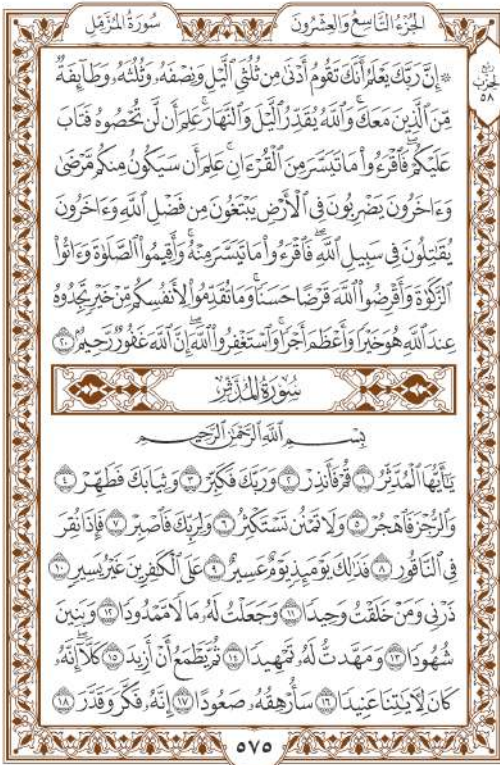 سُورَةُ المُزَّمِّل
الجُزْءُ التَّاسِعُ وَالعِشْرُونَ
رُبْعُ
الحِزْبِ
٥٨
۞ إِنَّ رَبَّكَ يَعْلَمُ أَنَّكَ تَقُومُ أَدْنَىٰ مِن ثُلُثَيِ ٱلَّيْلِ وَنِصْفَهُۥ وَثُلُثَهُۥ وَطَآئِفَةٌ
مِّنَ ٱلَّذِينَ مَعَكَۚ وَٱللَّهُ يُقَدِّرُ ٱلَّيْلَ وَٱلنَّهَارَۚ عَلِمَ أَن لَّن تُحْصُوهُ فَتَابَ
عَلَيْكُمْۖ فَٱقْرَءُوا۟ مَا تَيَسَّرَ مِنَ ٱلْقُرْءَانِۚ عَلِمَ أَن سَيَكُونُ مِنكُم مَّرْضَىٰ
وَءَاخَرُونَ يَضْرِبُونَ فِى ٱلْأَرْضِ يَبْتَغُونَ مِن فَضْلِ ٱللَّهِ وَءَاخَرُونَ
يُقَٰتِلُونَ فِى سَبِيلِ ٱللَّهِۖ فَٱقْرَءُوا۟ مَا تَيَسَّرَ مِنْهُۚ وَأَقِيمُوا۟ ٱلصَّلَوٰةَ وَءَاتُوا۟
ٱلزَّكَوٰةَ وَأَقْرِضُوا۟ ٱللَّهَ قَرْضًا حَسَنًاۚ وَمَا تُقَدِّمُوا۟ لِأَنفُسِكُم مِّنْ خَيْرٍ تَجِدُوهُ
عِندَ ٱللَّهِ هُوَ خَيْرًا وَأَعْظَمَ أَجْرًاۚ وَٱسْتَغْفِرُوا۟ ٱللَّهَۖ إِنَّ ٱللَّهَ غَفُورٌ رَّحِيمٌۢ ٢٠
سُورَةُ المُدَّثِّر
بِسْمِ ٱللَّهِ ٱلرَّحْمَٰنِ ٱلرَّحِيمِ
يَٰٓأَيُّهَا ٱلْمُدَّثِّرُ ١ قُمْ فَأَنذِرْ ٢ وَرَبَّكَ فَكَبِّرْ ٣ وَثِيَابَكَ فَطَهِّرْ ٤
وَٱلرُّجْزَ فَٱهْجُرْ ٥ وَلَا تَمْنُن تَسْتَكْثِرُ ٦ وَلِرَبِّكَ فَٱصْبِرْ ٧ فَإِذَا نُقِرَ
فِى ٱلنَّاقُورِ ٨ فَذَٰلِكَ يَوْمَئِذٍ يَوْمٌ عَسِيرٌ ٩ عَلَى ٱلْكَٰفِرِينَ غَيْرُ يَسِيرٍ ١٠
ذَرْنِى وَمَنْ خَلَقْتُ وَحِيدًا ١١ وَجَعَلْتُ لَهُۥ مَالًا مَّمْدُودًا ١٢ وَبَنِينَ
شُهُودًا ١٣ وَمَهَّدتُّ لَهُۥ تَمْهِيدًا ١٤ ثُمَّ يَطْمَعُ أَنْ أَزِيدَ ١٥ كَلَّآۖ إِنَّهُۥ
كَانَ لِءَايَٰتِنَا عَنِيدًا ١٦ سَأُرْهِقُهُۥ صَعُودًا ١٧ إِنَّهُۥ فَكَّرَ وَقَدَّرَ ١٨
٥٧٥